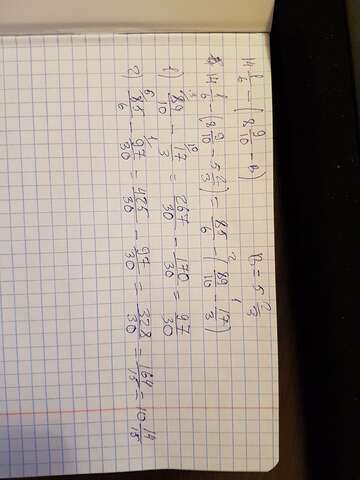 14 1/6 - (8 9/10 - n)   n = 5 2/3
14 1/6 - (8 9/10 - 5 2/3) = 85/6 - (89/10 - 17/3)
1) 89/10 - 17/3 = 267/30 - 170/30 = 97/30
2) 85/6 - 97/30 = 425/30 - 97/30 = 328/30 = 164/15 = 10 14/15